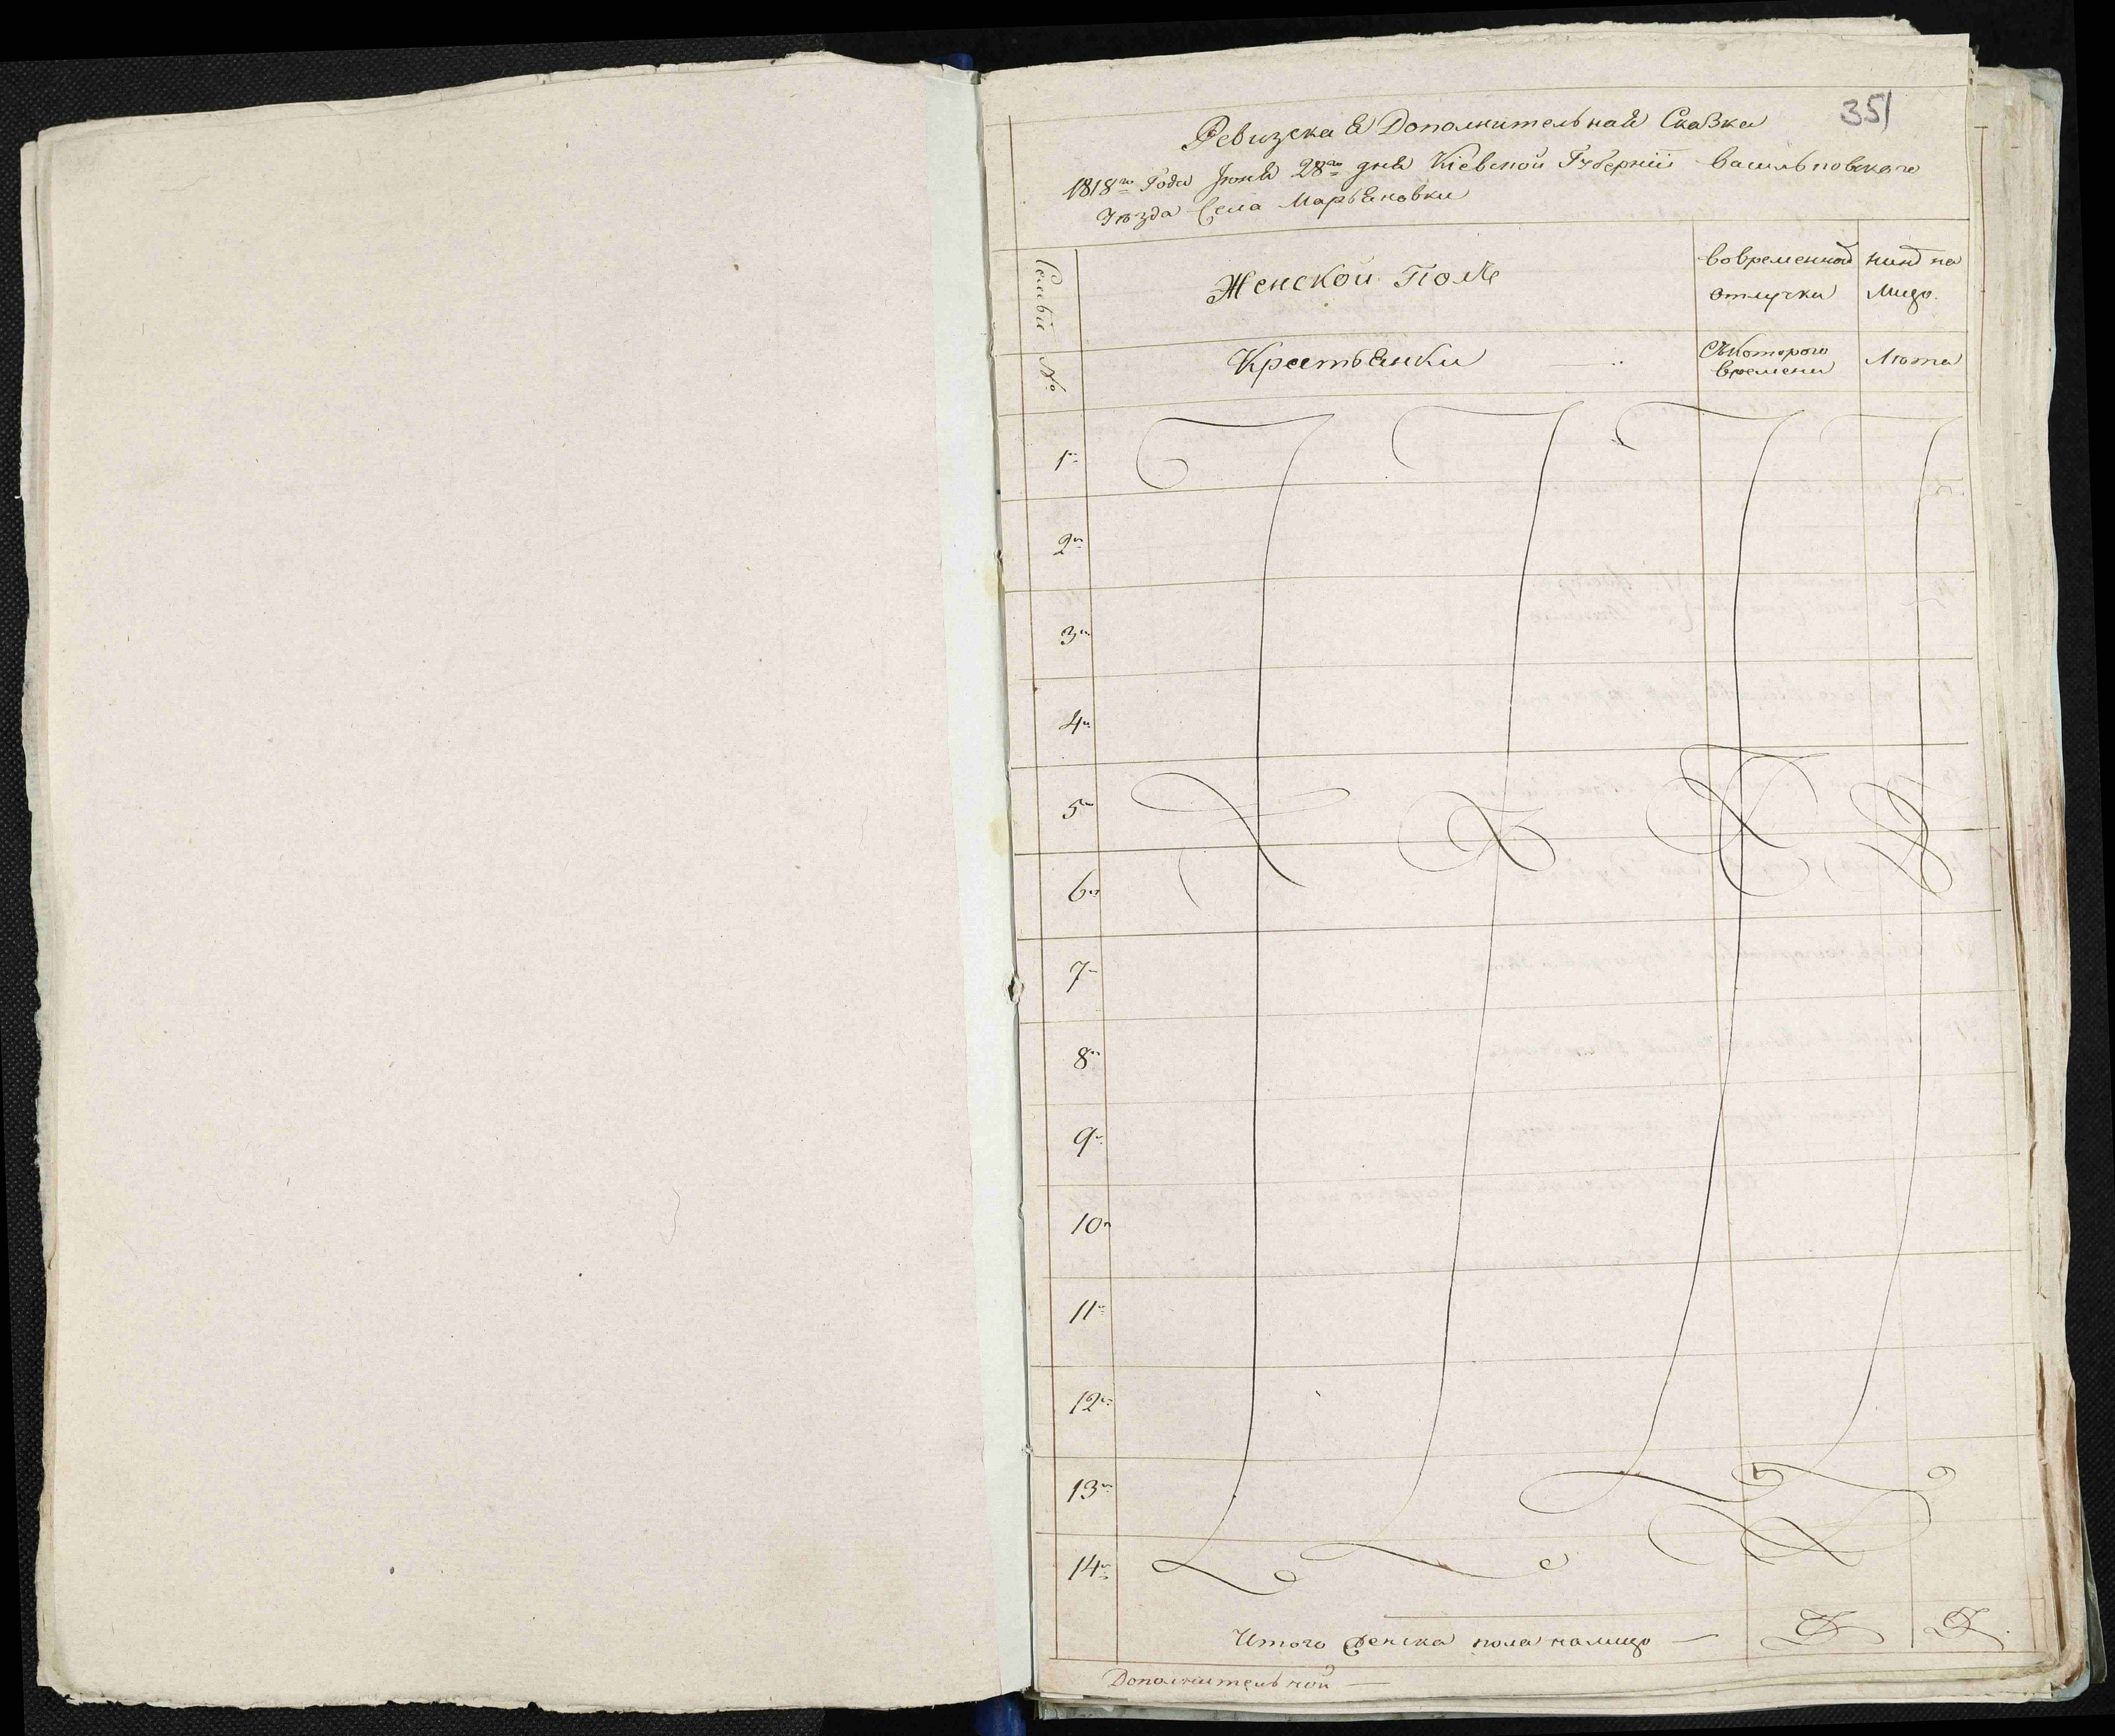 351
Ревизская Дополнительная Сказка
1818го Года Июня 28го дня Кіевской Губерніи Васильковскаго
Уѣзда Села Марьяновки
Семьи №
Женской Полъ
Вовременной отлучки
нынѣ на лицо.
Крестьянки
Съкоторого времени
Лѣта
1
2
3
4
5
6
7
8
9
10
11
12
13
14
Итого женска пола налицо —
Дополнительной —